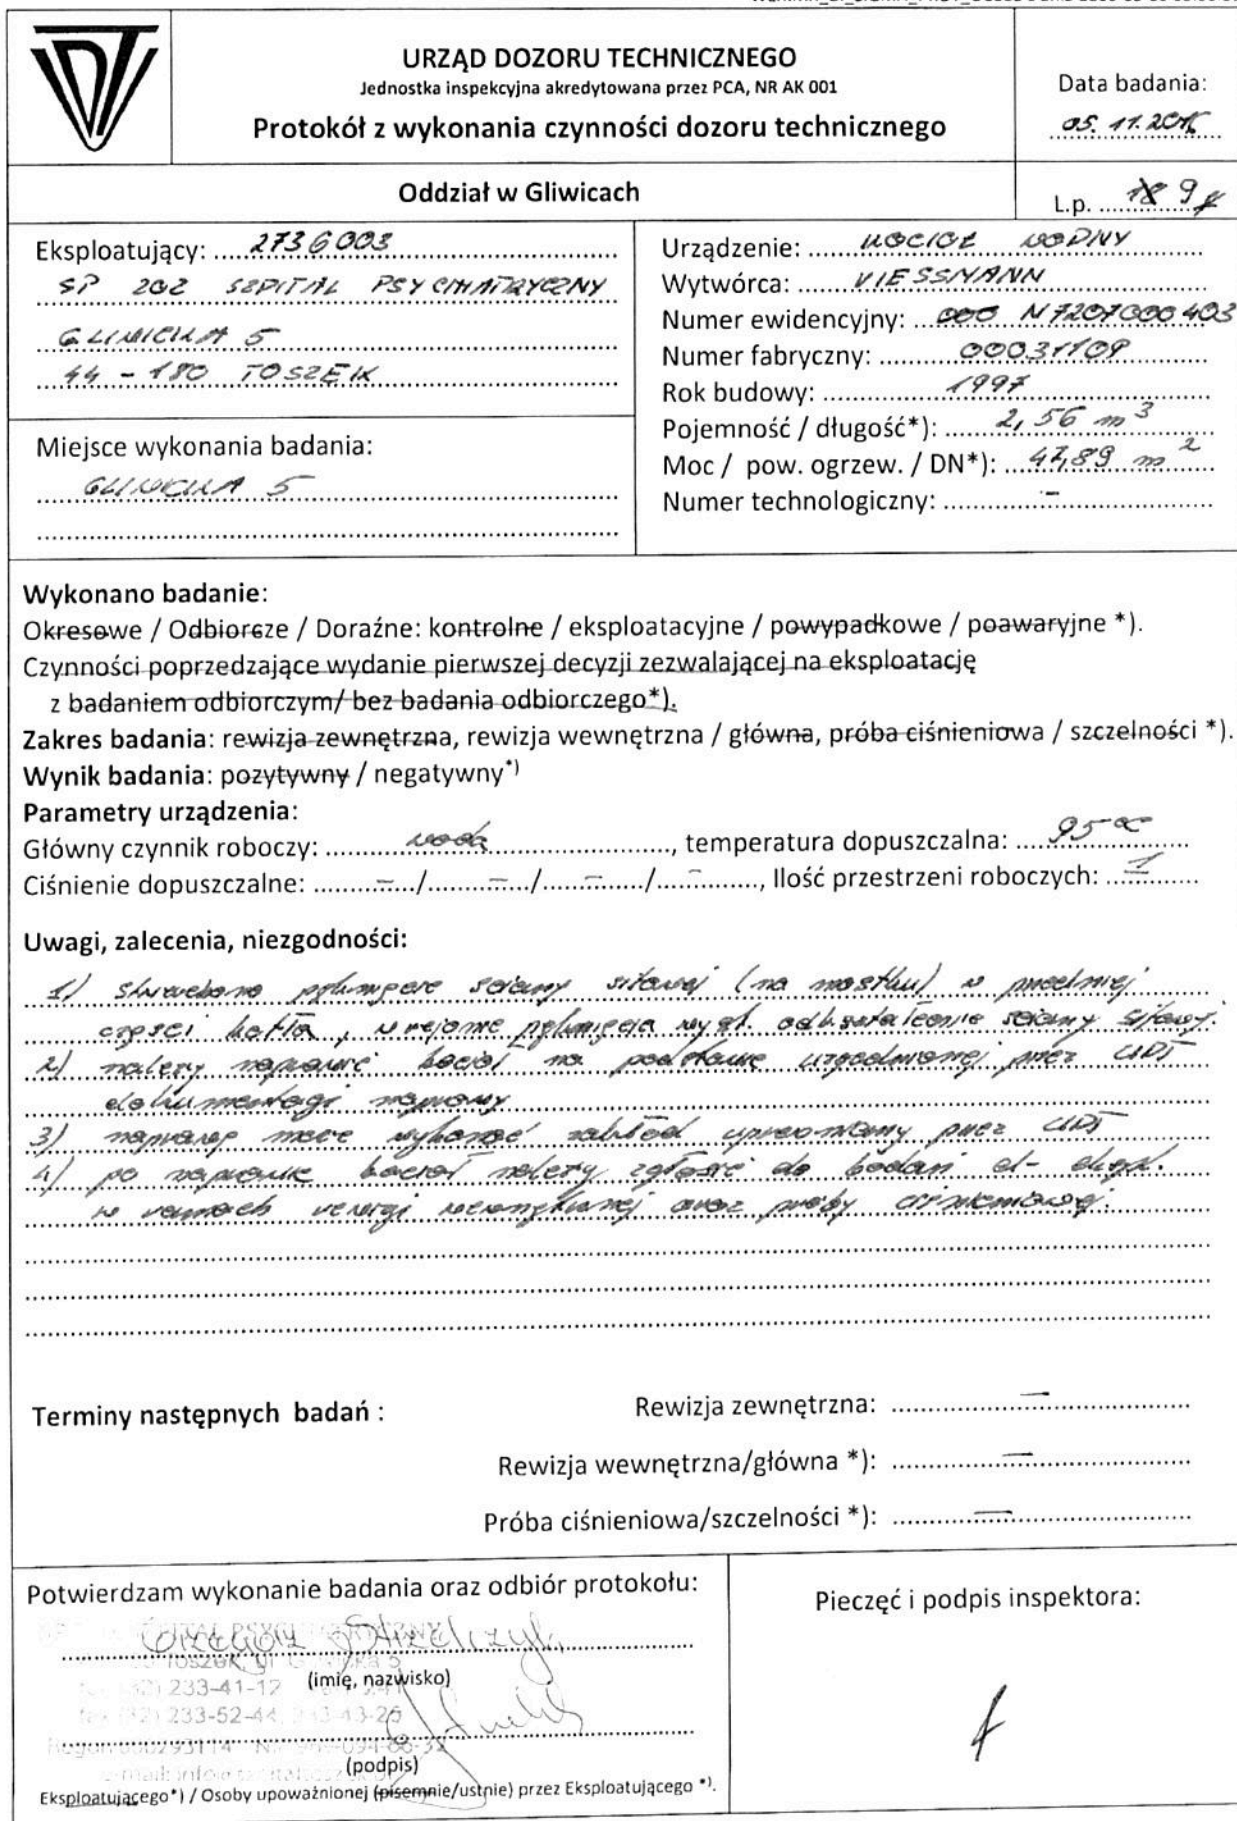 URZĄD DOZORU TECHNICZNEGO
Jednostka inspekcyjna akredytowana przez PCA, NR AK 001
Protokół z wykonania czynności dozoru technicznego
Data badania:
05.11.2015
Oddział w Gliwicach
L.p. 18 9
Eksploatujący: 2736003
SP ZOZ SZPITAL PSYCHIATRYCZNY
GLIWICKA 5
44-180 TOSZEK
Miejsce wykonania badania:
GLIWICKA 5
Urządzenie: KOCIOŁ WODNY
Wytwórca: VIESSMANN
Numer ewidencyjny: N7207000403
Numer fabryczny: 00031109
Rok budowy: 1997
Pojemność / długość*): 2,56 m3
Moc / pow. ogrzew. / DN*): 47,89 m2
Numer technologiczny: -
Wykonano badanie:
Okresowe / Odbiorcze / Doraźne: kontrolne / eksploatacyjne / powypadkowe / poawaryjne *).
Czynności poprzedzające wydanie pierwszej decyzji zezwalającej na eksploatację
z badaniem odbiorczym/ bez badania odbiorczego*).
Zakres badania: rewizja zewnętrzna, rewizja wewnętrzna / główna, próba ciśnieniowa / szczelności *).
Wynik badania: pozytywny / negatywny*)
Parametry urządzenia:
Główny czynnik roboczy: woda, temperatura dopuszczalna: 95°C
Ciśnienie dopuszczalne: - / - / - / -, Ilość przestrzeni roboczych: 1
Uwagi, zalecenia, niezgodności:
1) stwierdzono pęknięcie ściany sitowej (na mostku) w przedniej
części kotła, w rejonie pęknięcia wyst. odkształcenie ściany sitowej.
2) należy naprawić kocioł na podstawie uzgodnionej przez UDT
dokumentacji naprawy
3) naprawę może wykonać zakład uprawniony przez UDT
4) po naprawie kocioł należy zgłosić do badań ekspl.
w ramach rewizji wewnętrznej oraz próby ciśnieniowej.
Terminy następnych badań :
Rewizja zewnętrzna: —
Rewizja wewnętrzna/główna *): —
Próba ciśnieniowa/szczelności *): —
Potwierdzam wykonanie badania oraz odbiór protokołu:
Grzegorz Strzelczyk
(imię, nazwisko)
233-41-12
233-52-44
(podpis)
Eksploatującego*) / Osoby upoważnionej (pisemnie/ustnie) przez Eksploatującego *).
Pieczęć i podpis inspektora: